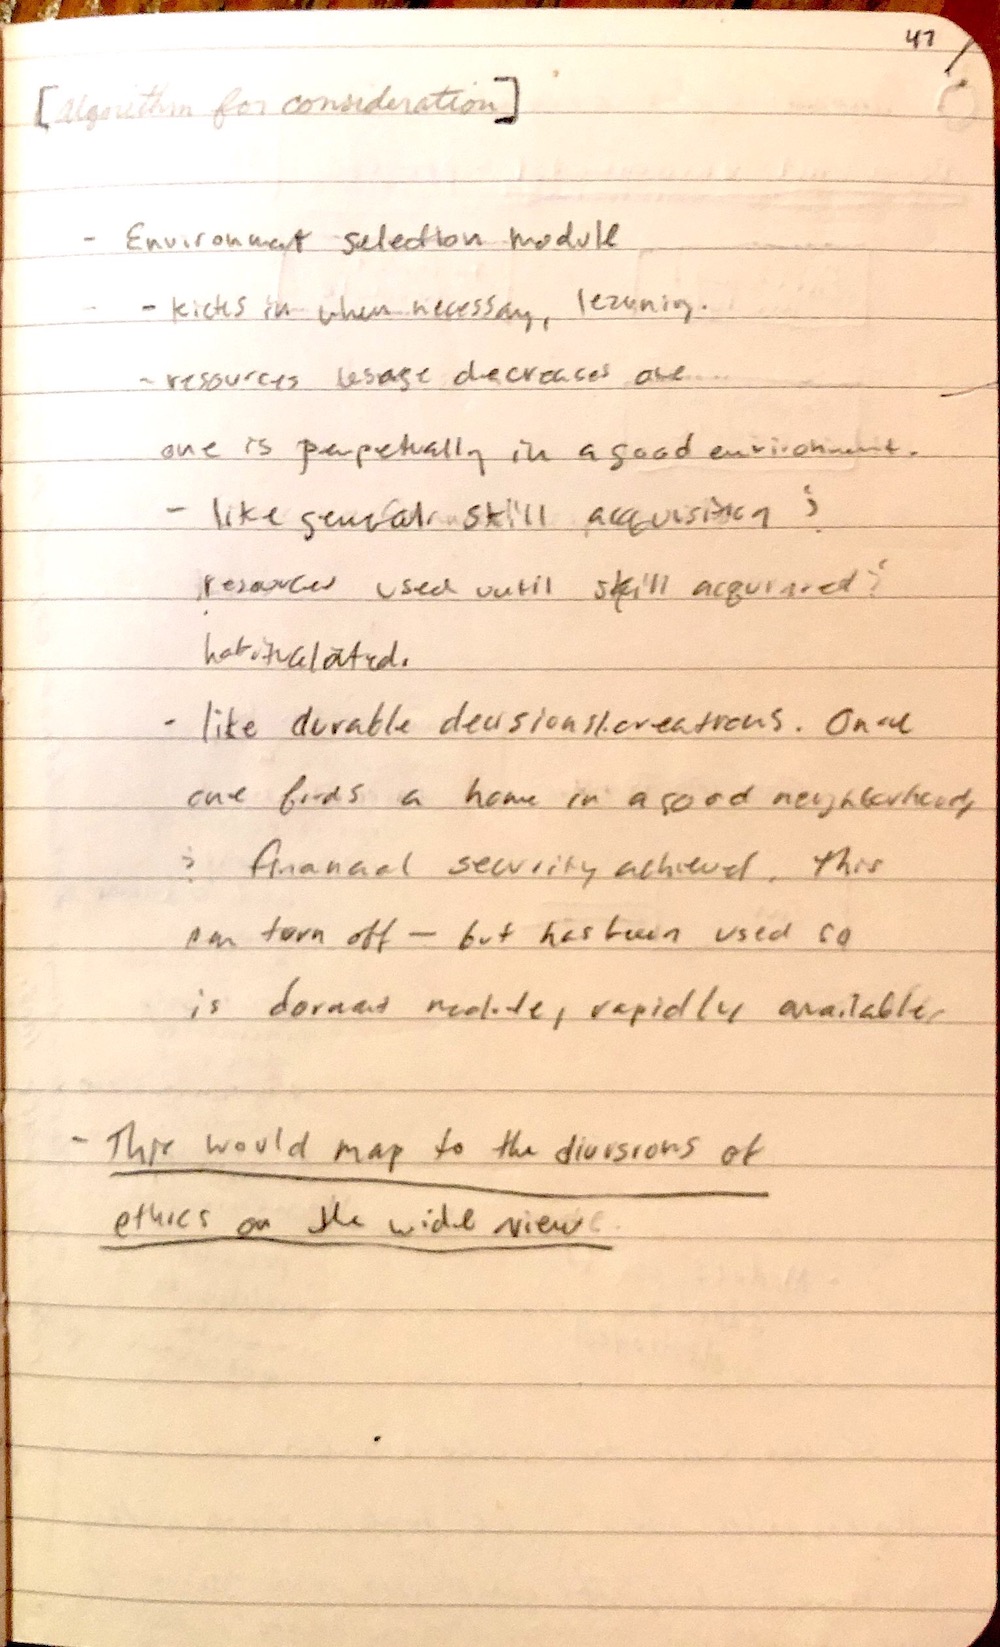 47
[Algorithm for consideration]
- Environment selection module
- kicks in when necessary, learning.
- resources usage decreases one
one is perpetually in a good environment.
- like general skill acquisition &
resources used until skill acquired &
habitualated.
- like durable decisions/creations. Once
one finds a home in a good neighborhood,
& financial security achieved, this
can turn off — but has been used so
is dormant module, rapidly available.
- This would map to the divisions of
ethics on the wide view.